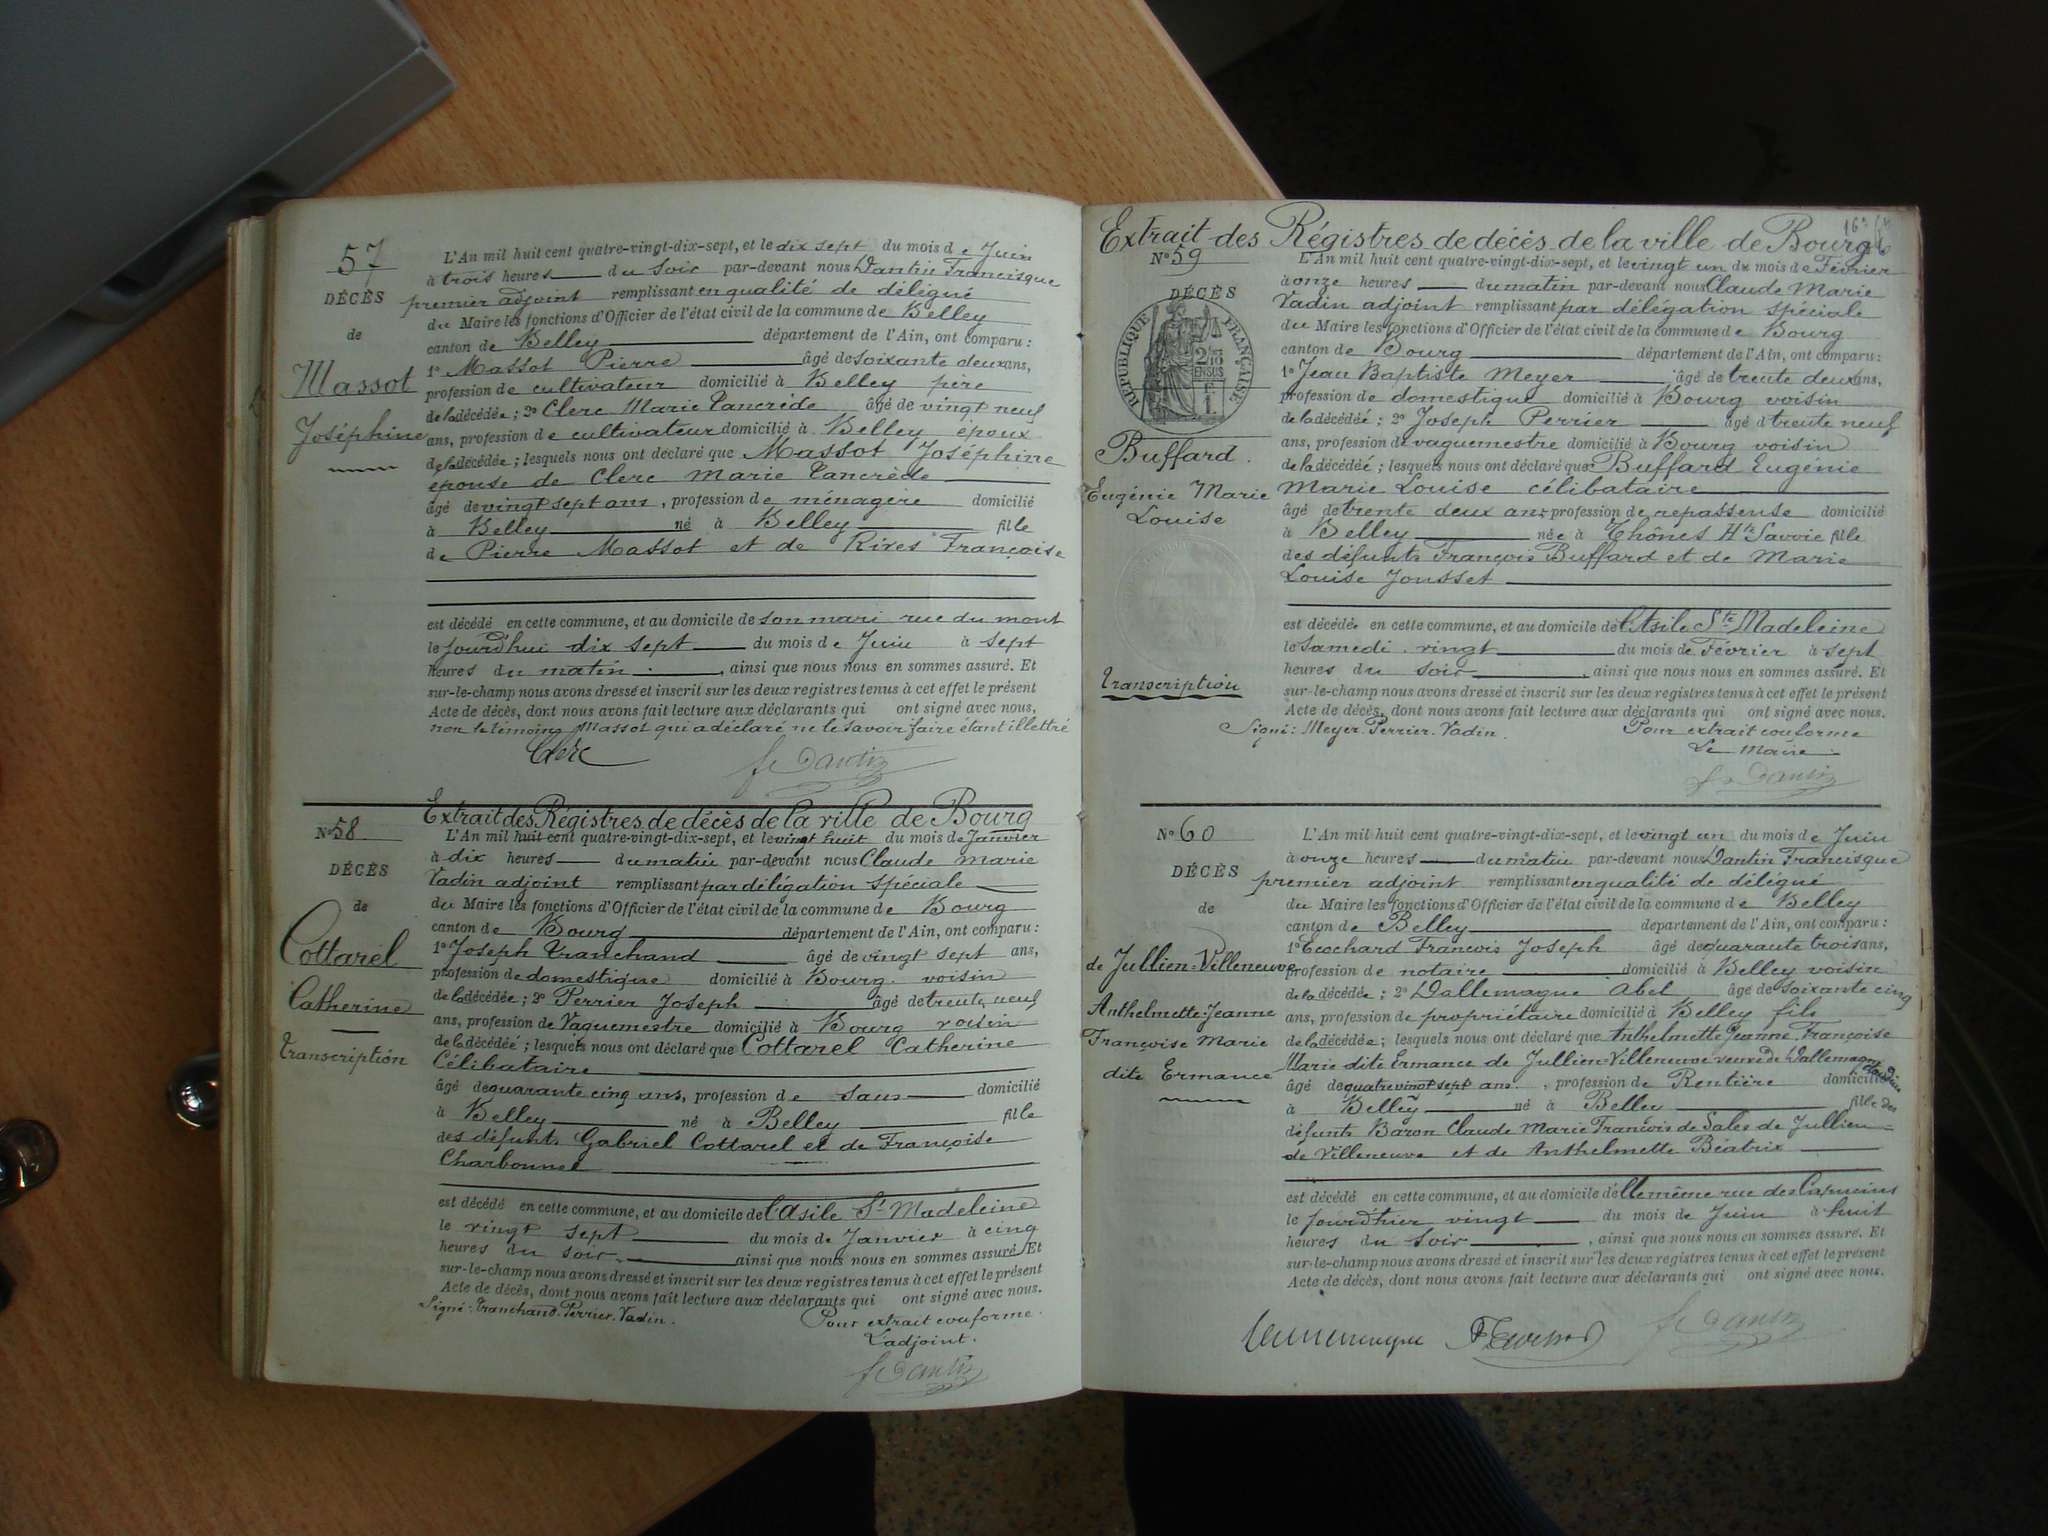 57
DÉCÈS
de
Massot
Joséphine
L'An mil huit cent quatre-vingt-dix-sept, et le dix sept du mois de Juin
à trois heures du soir par-devant nous Dantin Francisque
premier adjoint remplissant en qualité de délégué
du Maire les fonctions d'Officier de l'état civil de la commune de Belley
canton de Belley département de l'Ain, ont comparu :
1º Massot Pierre âgé de soixante deux ans,
profession de cultivateur domicilié à Belley père
de la décédée ; 2º Clerc Marie Tancrède âgé de vingt neuf
ans, profession de cultivateur domicilié à Belley époux
de la décédée ; lesquels nous ont déclaré que Massot Joséphine
épouse de Clerc Marie Tancrède
âgé de vingt sept ans, profession de ménagère domicilié
à Belley né à Belley fille
de Pierre Massot et de Rives Françoise
est décédé en cette commune, et au domicile de son mari rue du mont
le jourd'hui dix sept du mois de Juin à sept
heures du matin, ainsi que nous nous en sommes assuré. Et
sur-le-champ nous avons dressé et inscrit sur les deux registres tenus à cet effet le présent
Acte de décès, dont nous avons fait lecture aux déclarants qui ont signé avec nous,
non le témoin Massot qui a déclaré ne le savoir faire étant illettré
Clerc fr Dantin
Extrait des Régistres de décès de la ville de Bourg
Nº 58
DÉCÈS
de
Cottarel
Catherine
Transcription
L'An mil huit cent quatre-vingt-dix-sept, et le vingt huit du mois de Janvier
à dix heures du matin par-devant nous Claude Marie
Vadin adjoint remplissant par délégation spéciale
du Maire les fonctions d'Officier de l'état civil de la commune de Bourg
canton de Bourg département de l'Ain, ont comparu :
1º Joseph Tranchand âgé de vingt sept ans,
profession de domestique domicilié à Bourg voisin
de la décédée ; 2º Perrier Joseph âgé de trente neuf
ans, profession de Vaguemestre domicilié à Bourg voisin
de la décédée ; lesquels nous ont déclaré que Cottarel Catherine
Célibataire
âgé de quarante cinq ans, profession de sans domicilié
à Belley né à Belley fille
des défunts Gabriel Cottarel et de Françoise
Charbonnet
est décédé en cette commune, et au domicile de l'Asile Ste Madeleine
le vingt sept du mois de Janvier à cinq
heures du soir ainsi que nous nous en sommes assuré. Et
sur-le-champ nous avons dressé et inscrit sur les deux registres tenus à cet effet le présent
Acte de décès, dont nous avons fait lecture aux déclarants qui ont signé avec nous.
Signé : Tranchand. Perrier. Vadin.
Pour extrait conforme.
L'adjoint.
fr Dantin
Extrait des Régistres de décès de la ville de Bourg
Nº 59
DÉCÈS
RÉPUBLIQUE FRANÇAISE
Buffard.
Eugénie Marie
Louise
Transcription
L'An mil huit cent quatre-vingt-dix-sept, et le vingt un du mois de Février
à onze heures du matin par-devant nous Claude Marie
Vadin adjoint remplissant par délégation spéciale
du Maire les fonctions d'Officier de l'état civil de la commune de Bourg
canton de Bourg département de l'Ain, ont comparu :
1º Jean Baptiste Meyer âgé de trente deux ans,
profession de domestique domicilié à Bourg voisin
de la décédée ; 2º Joseph Perrier âgé d trente neuf
ans, profession de vaguemestre domicilié à Bourg voisin
de la décédée ; lesquels nous ont déclaré que Buffard Eugénie
Marie Louise célibataire
âgé de trente deux ans profession de repasseuse domicilié
à Belley née à Thônes Hte Savoie fille
des défunts François Buffard et de Marie
Louise Jousset
est décédée en cette commune, et au domicile de l'Asile Ste Madeleine
le samedi vingt du mois de Février à sept
heures du soir, ainsi que nous nous en sommes assuré. Et
sur-le-champ nous avons dressé et inscrit sur les deux registres tenus à cet effet le présent
Acte de décès, dont nous avons fait lecture aux déclarants qui ont signé avec nous.
Signé : Meyer. Perrier. Vadin.
Pour extrait conforme
Le Maire
fr Dantin
Nº 60
DÉCÈS
de
de Jullien-Villeneuve
Anthelmette-Jeanne
Françoise Marie
dite Ermance
L'An mil huit cent quatre-vingt-dix-sept, et le vingt un du mois de Juin
à onze heures du matin par-devant nous Dantin Francisque
premier adjoint remplissant en qualité de délégué
du Maire les fonctions d'Officier de l'état civil de la commune de Belley
canton de Belley département de l'Ain, ont comparu :
1º Ecochard François Joseph âgé de quarante trois ans,
profession de notaire domicilié à Belley voisin
de la décédée ; 2º Dallemagne Abel âgé de soixante cinq
ans, profession de propriétaire domicilié à Belley fils
de la décédée ; lesquels nous ont déclaré que Anthelmette Jeanne Françoise
Marie dite Ermance de Jullien-Villeneuve veuve de Dallemagne Claudius
âgé de quatre vingt sept ans, profession de Rentière domicilié
à Belley né à Belley fille des
défunts Baron Claude Marie François de Sales de Jullien-
de Villeneuve et de Anthelmette Béatrix
est décédé en cette commune, et au domicile d'elle même rue des Capucins
le jourd'hier vingt du mois de Juin à huit
heures du soir, ainsi que nous nous en sommes assuré. Et
sur-le-champ nous avons dressé et inscrit sur les deux registres tenus à cet effet le présent
Acte de décès, dont nous avons fait lecture aux déclarants qui ont signé avec nous.
fr Dantin